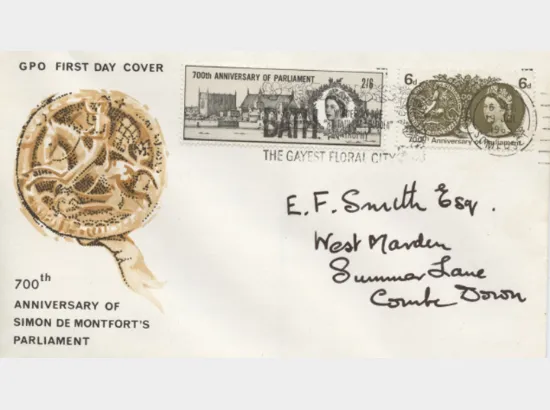 GPO FIRST DAY COVER
700th ANNIVERSARY OF PARLIAMENT 2/6
6d 6d
700th Anniversary of Parliament
BATH
THE GAYEST FLORAL CITY
E. F. Smith Esq.
West Marden
Summer Lane
Combe Down
700th
ANNIVERSARY OF
SIMON DE MONTFORT'S
PARLIAMENT